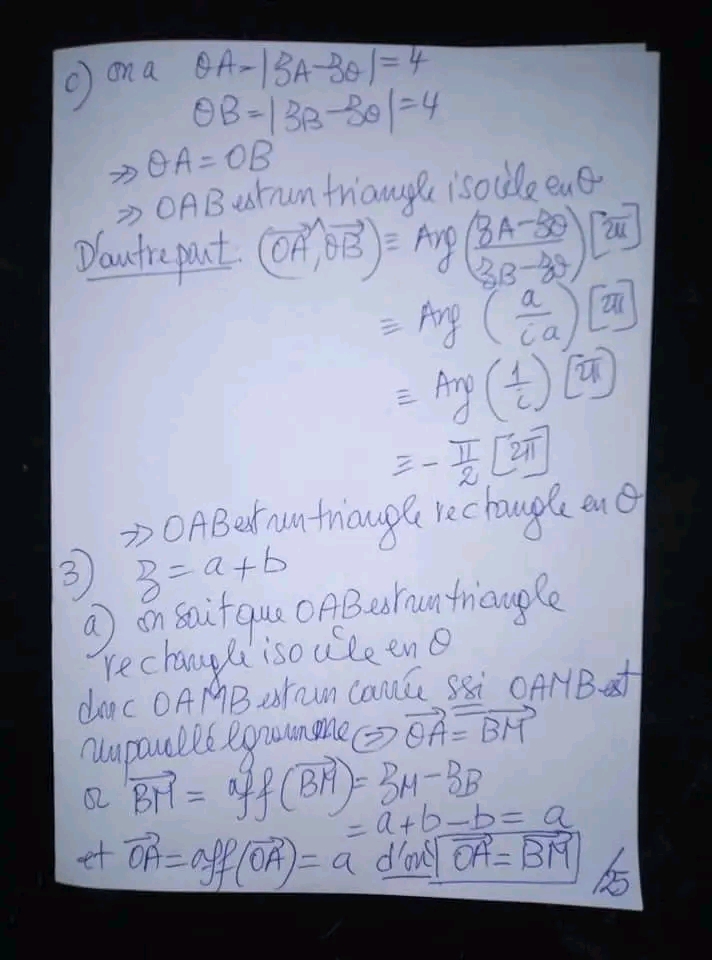 c) on a OA=|zA-zO|=4
OB=|zB-zO|=4
⇒ OA=OB
⇒ OAB est un triangle isocèle en O
D'autre part. (OA, OB) ≡ Arg (zA-zO / zB-zO) [2π]
≡ Arg (a / ia) [2π]
≡ Arg (1 / i) [2π]
≡ - π/2 [2π]
⇒ OAB est un triangle rectangle en O
3) z = a+b
a) on sait que OAB est un triangle
rectangle isocèle en O
donc OAMB est un carrée ssi OAMB est
un parallélgramme ⇔ OA = BM
or BM = aff(BM) = zM-zB
= a+b-b = a
et OA = aff(OA) = a d'où OA = BM
/25